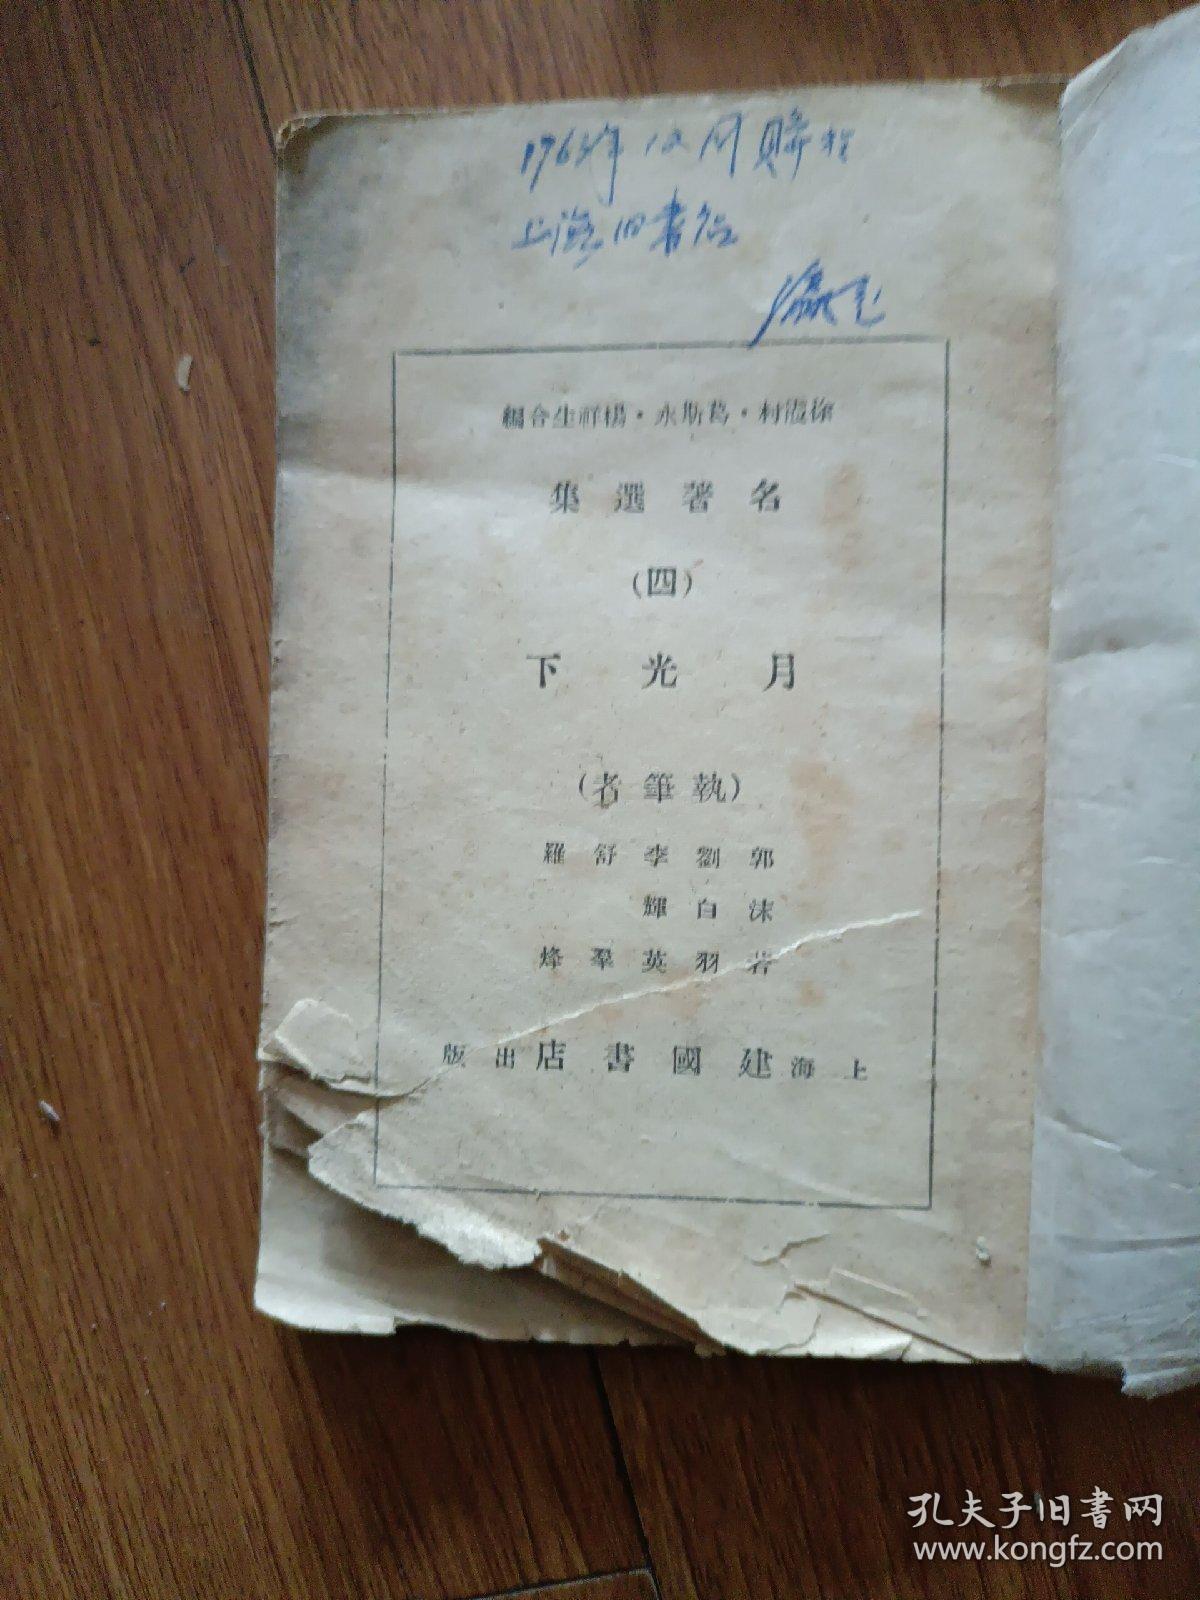 1963年12月購于
上海旧書店
徐霞村・葛斯永・楊祥生合編
名著選集
(四)
月光下
(執筆者)
郭沫若
劉白羽
李輝英
舒羣
羅烽
上海建國書店出版
孔夫子旧书网
www.kongfz.com